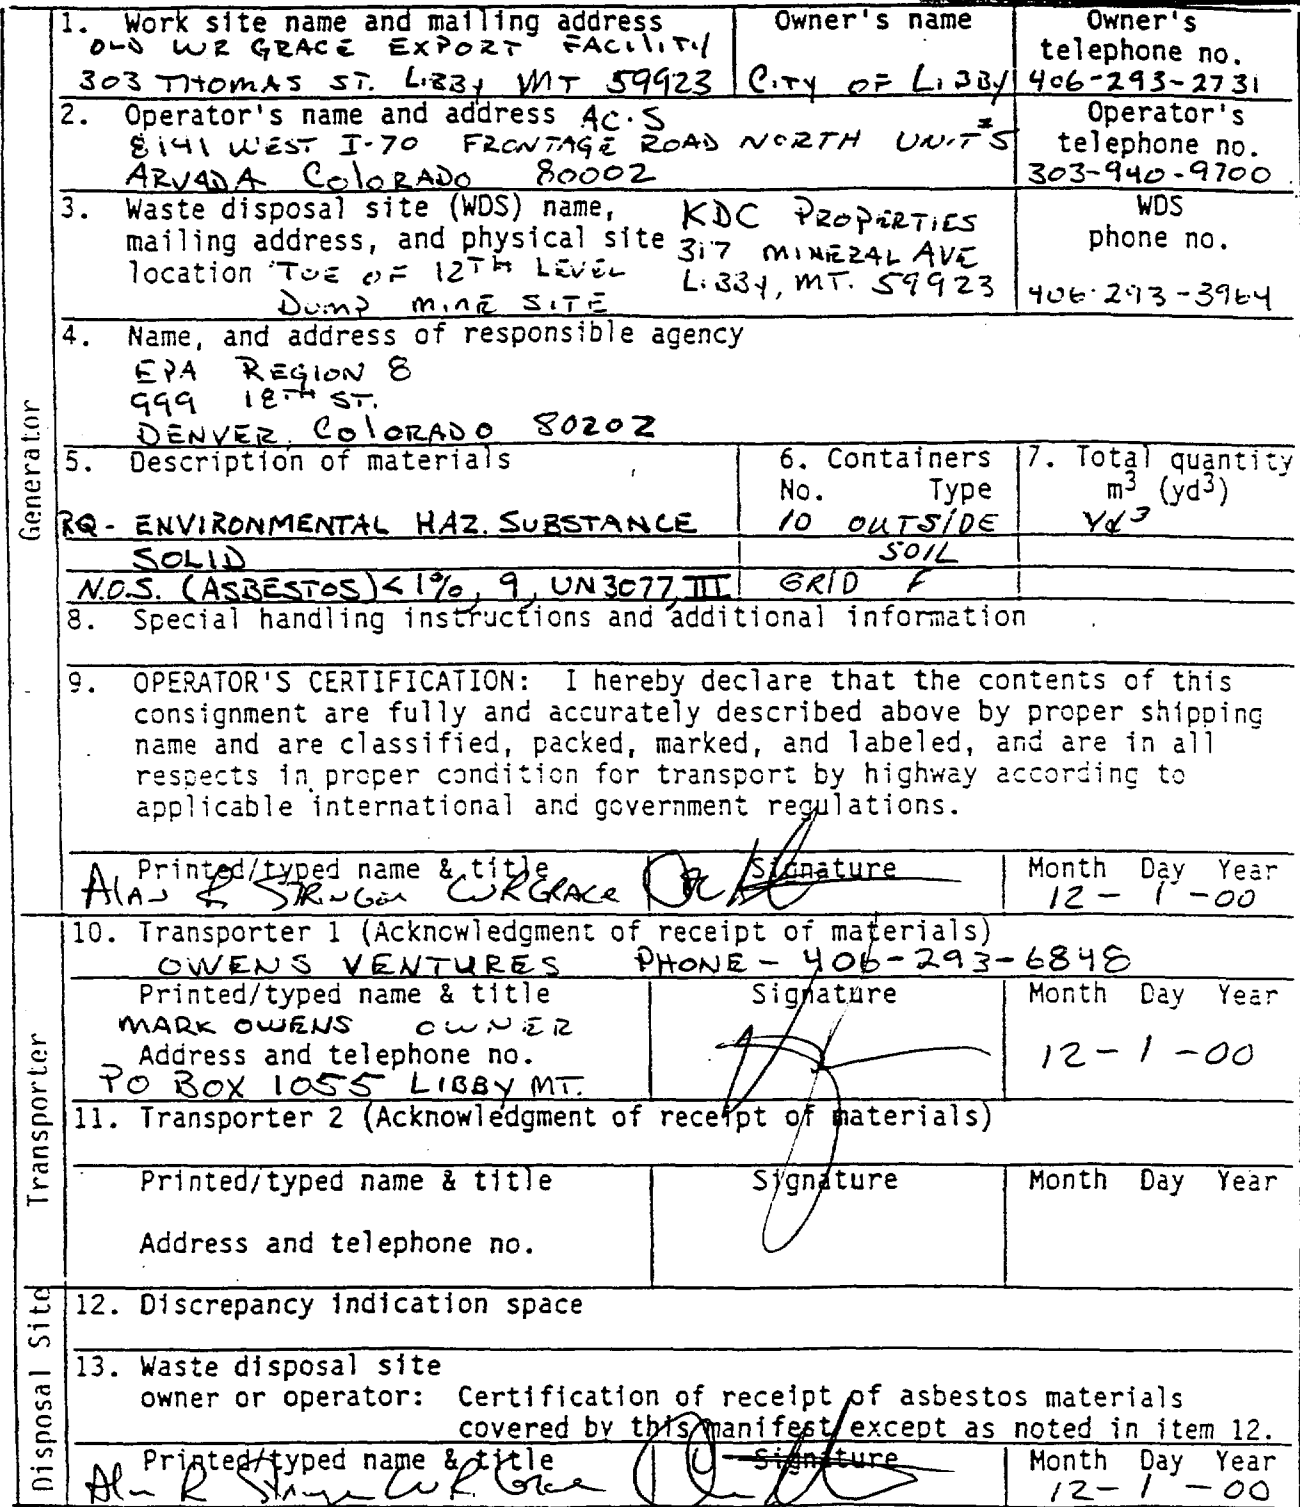 1. Work site name and mailing address
OLD WR GRACE EXPORT FACILITY
303 THOMAS ST. LIBBY MT 59923
Owner's name
CITY OF LIBBY
Owner's
telephone no.
406-293-2731
2. Operator's name and address AC.S
8141 WEST I-70 FRONTAGE ROAD NORTH UNIT #5
ARVADA COLORADO 80002
Operator's
telephone no.
303-940-9700
3. Waste disposal site (WDS) name,
mailing address, and physical site
location TOE OF 12TH LEVEL
DUMP MINE SITE
KDC PROPERTIES
317 MINERAL AVE
LIBBY, MT. 59923
WDS
phone no.
406-293-3964
4. Name, and address of responsible agency
EPA REGION 8
999 18TH ST.
DENVER, COLORADO 80202
Generator
5. Description of materials
RQ- ENVIRONMENTAL HAZ. SUBSTANCE
SOLID
N.O.S. (ASBESTOS) < 1%, 9, UN3077, III
6. Containers
No. Type
10 OUTSIDE
SOIL
GRID F
7. Total quantity
m3 (yd3)
Yd3
8. Special handling instructions and additional information
9. OPERATOR'S CERTIFICATION: I hereby declare that the contents of this
consignment are fully and accurately described above by proper shipping
name and are classified, packed, marked, and labeled, and are in all
respects in proper condition for transport by highway according to
applicable international and government regulations.
Printed/typed name & title
Alan R Stringer WR Grace
Signature
Month Day Year
12-1-00
Transporter
10. Transporter 1 (Acknowledgment of receipt of materials)
OWENS VENTURES PHONE - 406-293-6848
Printed/typed name & title
MARK OWENS OWNER
Address and telephone no.
PO BOX 1055 LIBBY MT.
Signature
Month Day Year
12-1-00
11. Transporter 2 (Acknowledgment of receipt of materials)
Printed/typed name & title
Signature
Month Day Year
Address and telephone no.
Disposal Site
12. Discrepancy indication space
13. Waste disposal site
owner or operator: Certification of receipt of asbestos materials
covered by this manifest except as noted in item 12.
Printed/typed name & title
Alan R Stringer W R Grace
Signature
Month Day Year
12-1-00